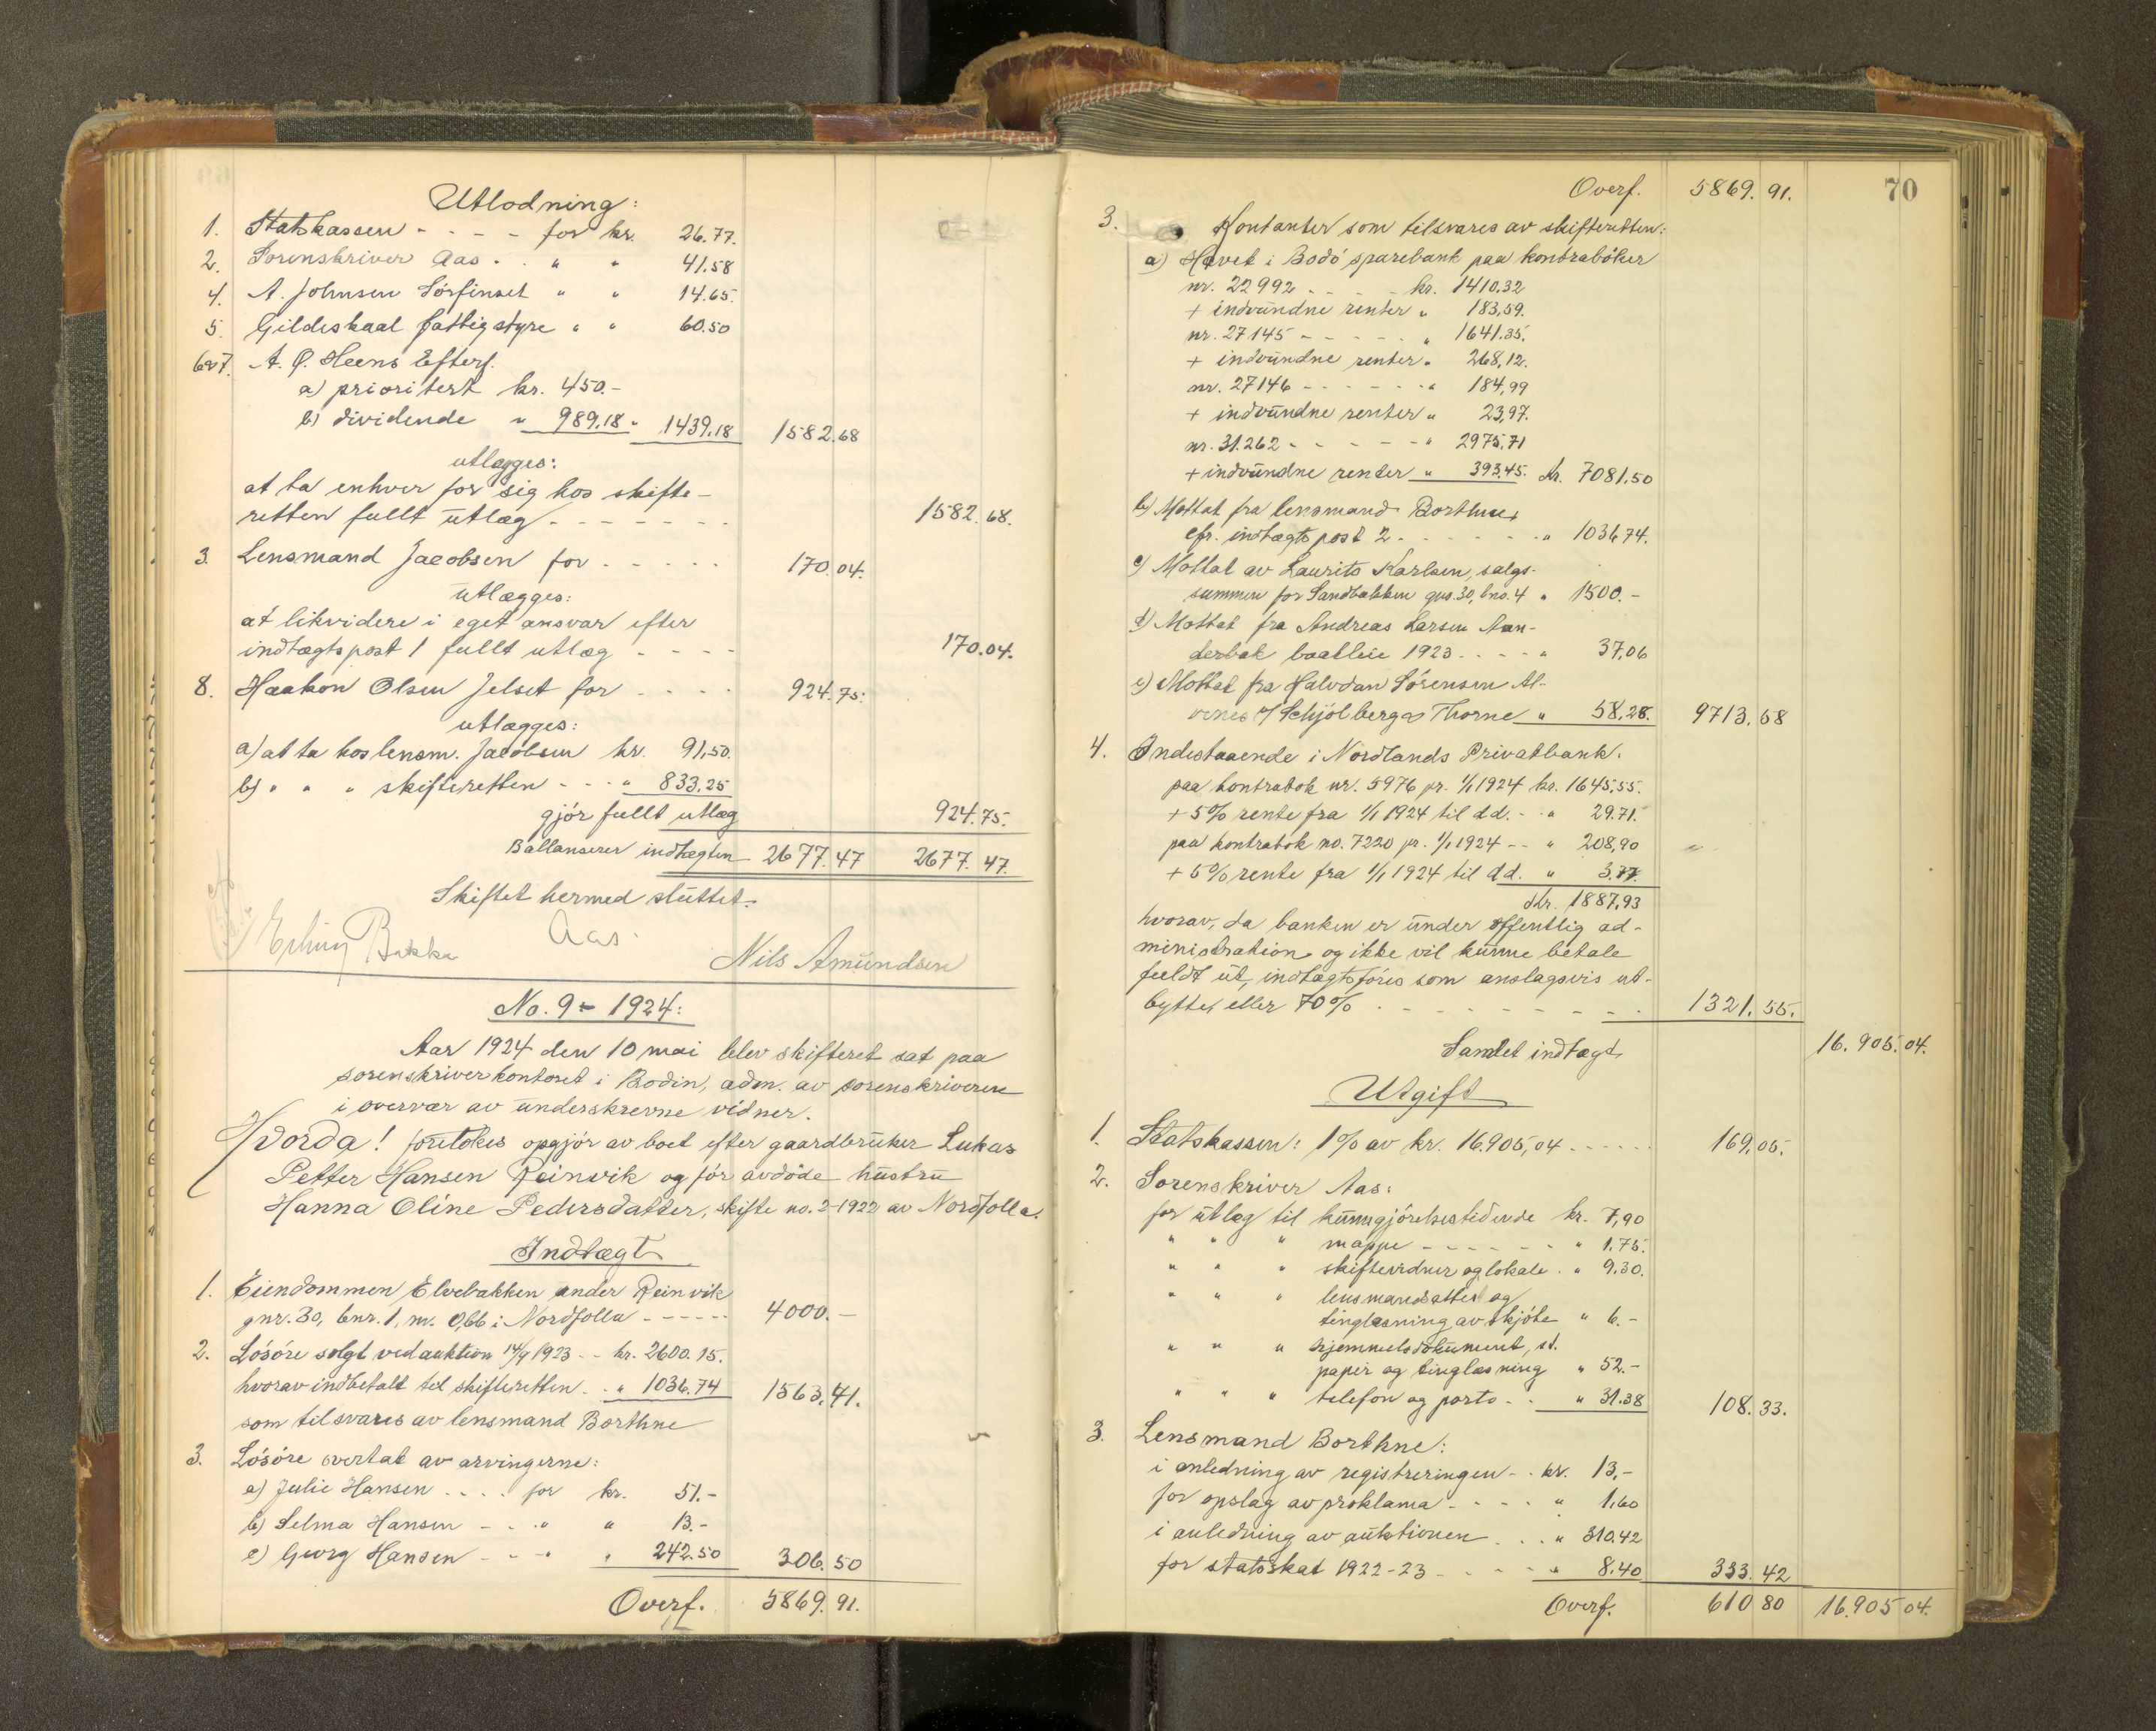 Utlodning:
1. Statskassen - - - - for kr. 26.77.
2. Sorenskriver Aas - . " " 41.58
4. A. Johnsen Sørfinset " " 14.65.
5. Gildeskaal fattigstyre " " 60.50
6 & 7. A. Q. Heens Efterf.
a) prioritert kr. 450.-
b) dividende " 989,18 " 1439,18 1582.68
utlægges:
at ta enhver for sig hos skifte-
retten fullt utlæg - - - - - - - 1582.68.
3. Lensmand Jacobsen for - - - - - 170.04.
utlægges:
at likvidere i eget ansvar efter
indtægtspost 1 fullt utlæg - - - - 170.04.
8. Haakon Olsen Jelset for - - - - 924.75.
utlægges:
a) at ta hos lensm. Jacobsen kr. 91,50.
b) " " " skifteretten - - - " 833.25
gjør fullt utlæg 924.75.
Ballanserer indtægten 2677.47 2677.47.
Skiftet hermed sluttet.
Erling Bakke Aas. Nils Amundsen
No. 9 - 1924:
Aar 1924 den 10 mai blev skifteret sat paa
sorenskriverkontoret i Bodin, adm. av sorenskriveren
i overvær av underskrevne vidner.
Hvorda! foretokes opgjør av boet efter gaardbruker Lukas
Petter Hansen Reinvik og før avdøde hustru
Hanna Oline Pedersdatter, skifte no. 2-1922 av Nordfolla.
Indtægt
1. Eiendommen Elvebakken under Reinvik
gnr. 30, bnr. 1, m. 0,66 i Nordfolla - - - - - - 4000.-
2. Løsøre solgt ved auktion 14/9 1923 - - kr. 2600.15.
hvorav indbetalt til skifteretten - . " 1036.74 1563.41.
som tilsvares av lensmand Borthne
3. Løsøre overtat av arvingerne:
a) Julie Hansen - - . . for kr. 51.-
b) Selma Hansen - - . " " 13.-
c) Georg Hansen - - . " " 242.50 306.50
Overf. 5869.91.
70
Overf. 5869.91.
3. Kontanter som tilsvares av skifteretten:
a) Hævet i Bodø sparebank paa kontrabøker
nr. 22992 - - - - kr. 1410.32
+ indvundne renter " 183,59.
nr. 27145 - - - - - " 1641.35.
+ indvundne renter " 268,12.
nr. 27146 - - - - - - " 184,99
+ indvundne renter " 23,97.
nr. 31.262 - - - - - " 2975.71
+ indvundne renter " 393.45. kr. 7081,50
b) Mottat fra lensmand Borthne,
cfr. indtægtspost 2 - - - - - - " 1036.74.
c) Mottat av Laurits Karlsen, salgs-
summen for Sandbakken gno. 30, bno. 4 " 1500.-
d) Mottat fra Andreas Larsen Nan-
derbak baatleie 1923 - - - - " 37,06
e) Mottat fra Halvdan Sørensen Al-
venes v/ Schjølberg & Thorne " 58,28. 9713,58
4. Indestaaende i Nordlands Privatbank.
paa kontrabok nr. 5976 pr. 1/1 1924 kr. 1645,55.
+ 5% rente fra 1/1 1924 til d.d. - - " 29.71.
paa kontrabok no. 7220 pr. 1/1 1924 - - " 208,90
+ 5% rente fra 1/1 1924 til d.d. " 3.77.
Kr. 1887,93
hvorav, da banken er under offentlig ad-
ministration og ikke vil kunne betale
fuldt ut, indtægtsføres som anslagsvis ut-
bytte, eller 70% - - - - - - - - 1321.55.
Samlet indtægt 16.905.04.
Utgift
1. Statskassen: 1% av kr. 16.905,04 - - - - - 169.05.
2. Sorenskriver Aas:
for utlæg til kunngjørelsestidende kr. 7,90
" " " mappe - - - - - - - " 1.75.
" " " skiftevidner og lokale . " 9.30.
" " " lensmandsattest og
tinglæsning av skjøte " 6.-
" " " hjemmelsdokument, st.
papir og tinglæsning " 52.-
" " " telefon og porto - . " 31.38 108.33.
3. Lensmand Borthne:
i anledning av registreringen - . kr. 13,-
for opslag av proklama - - - - " 1,60
i anledning av auktionen . . . " 310.42
for statsskat 1922-23 - - - - " 8.40 333.42
Overf. 610 80 16.905 04.